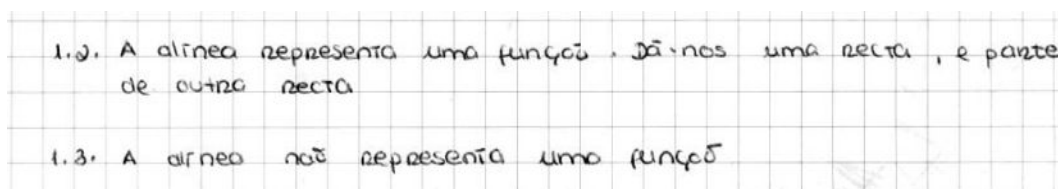 1.2. A alínea representa uma função. Dá-nos uma recta, e parte
de outra recta
1.3. A alínea não representa uma função